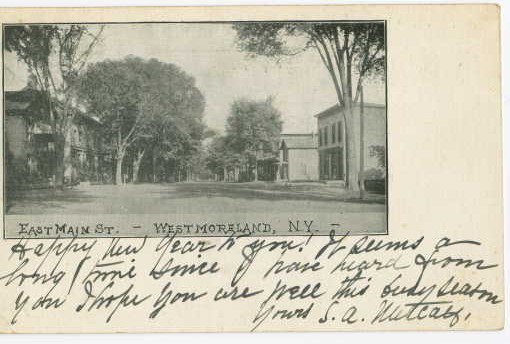 EAST MAIN ST. - WESTMORELAND, N.Y. -
Happy New Year to you! It seems a
long time since I have heard from
you I hope you are well this busy season
Yours S. A. Metcalf.